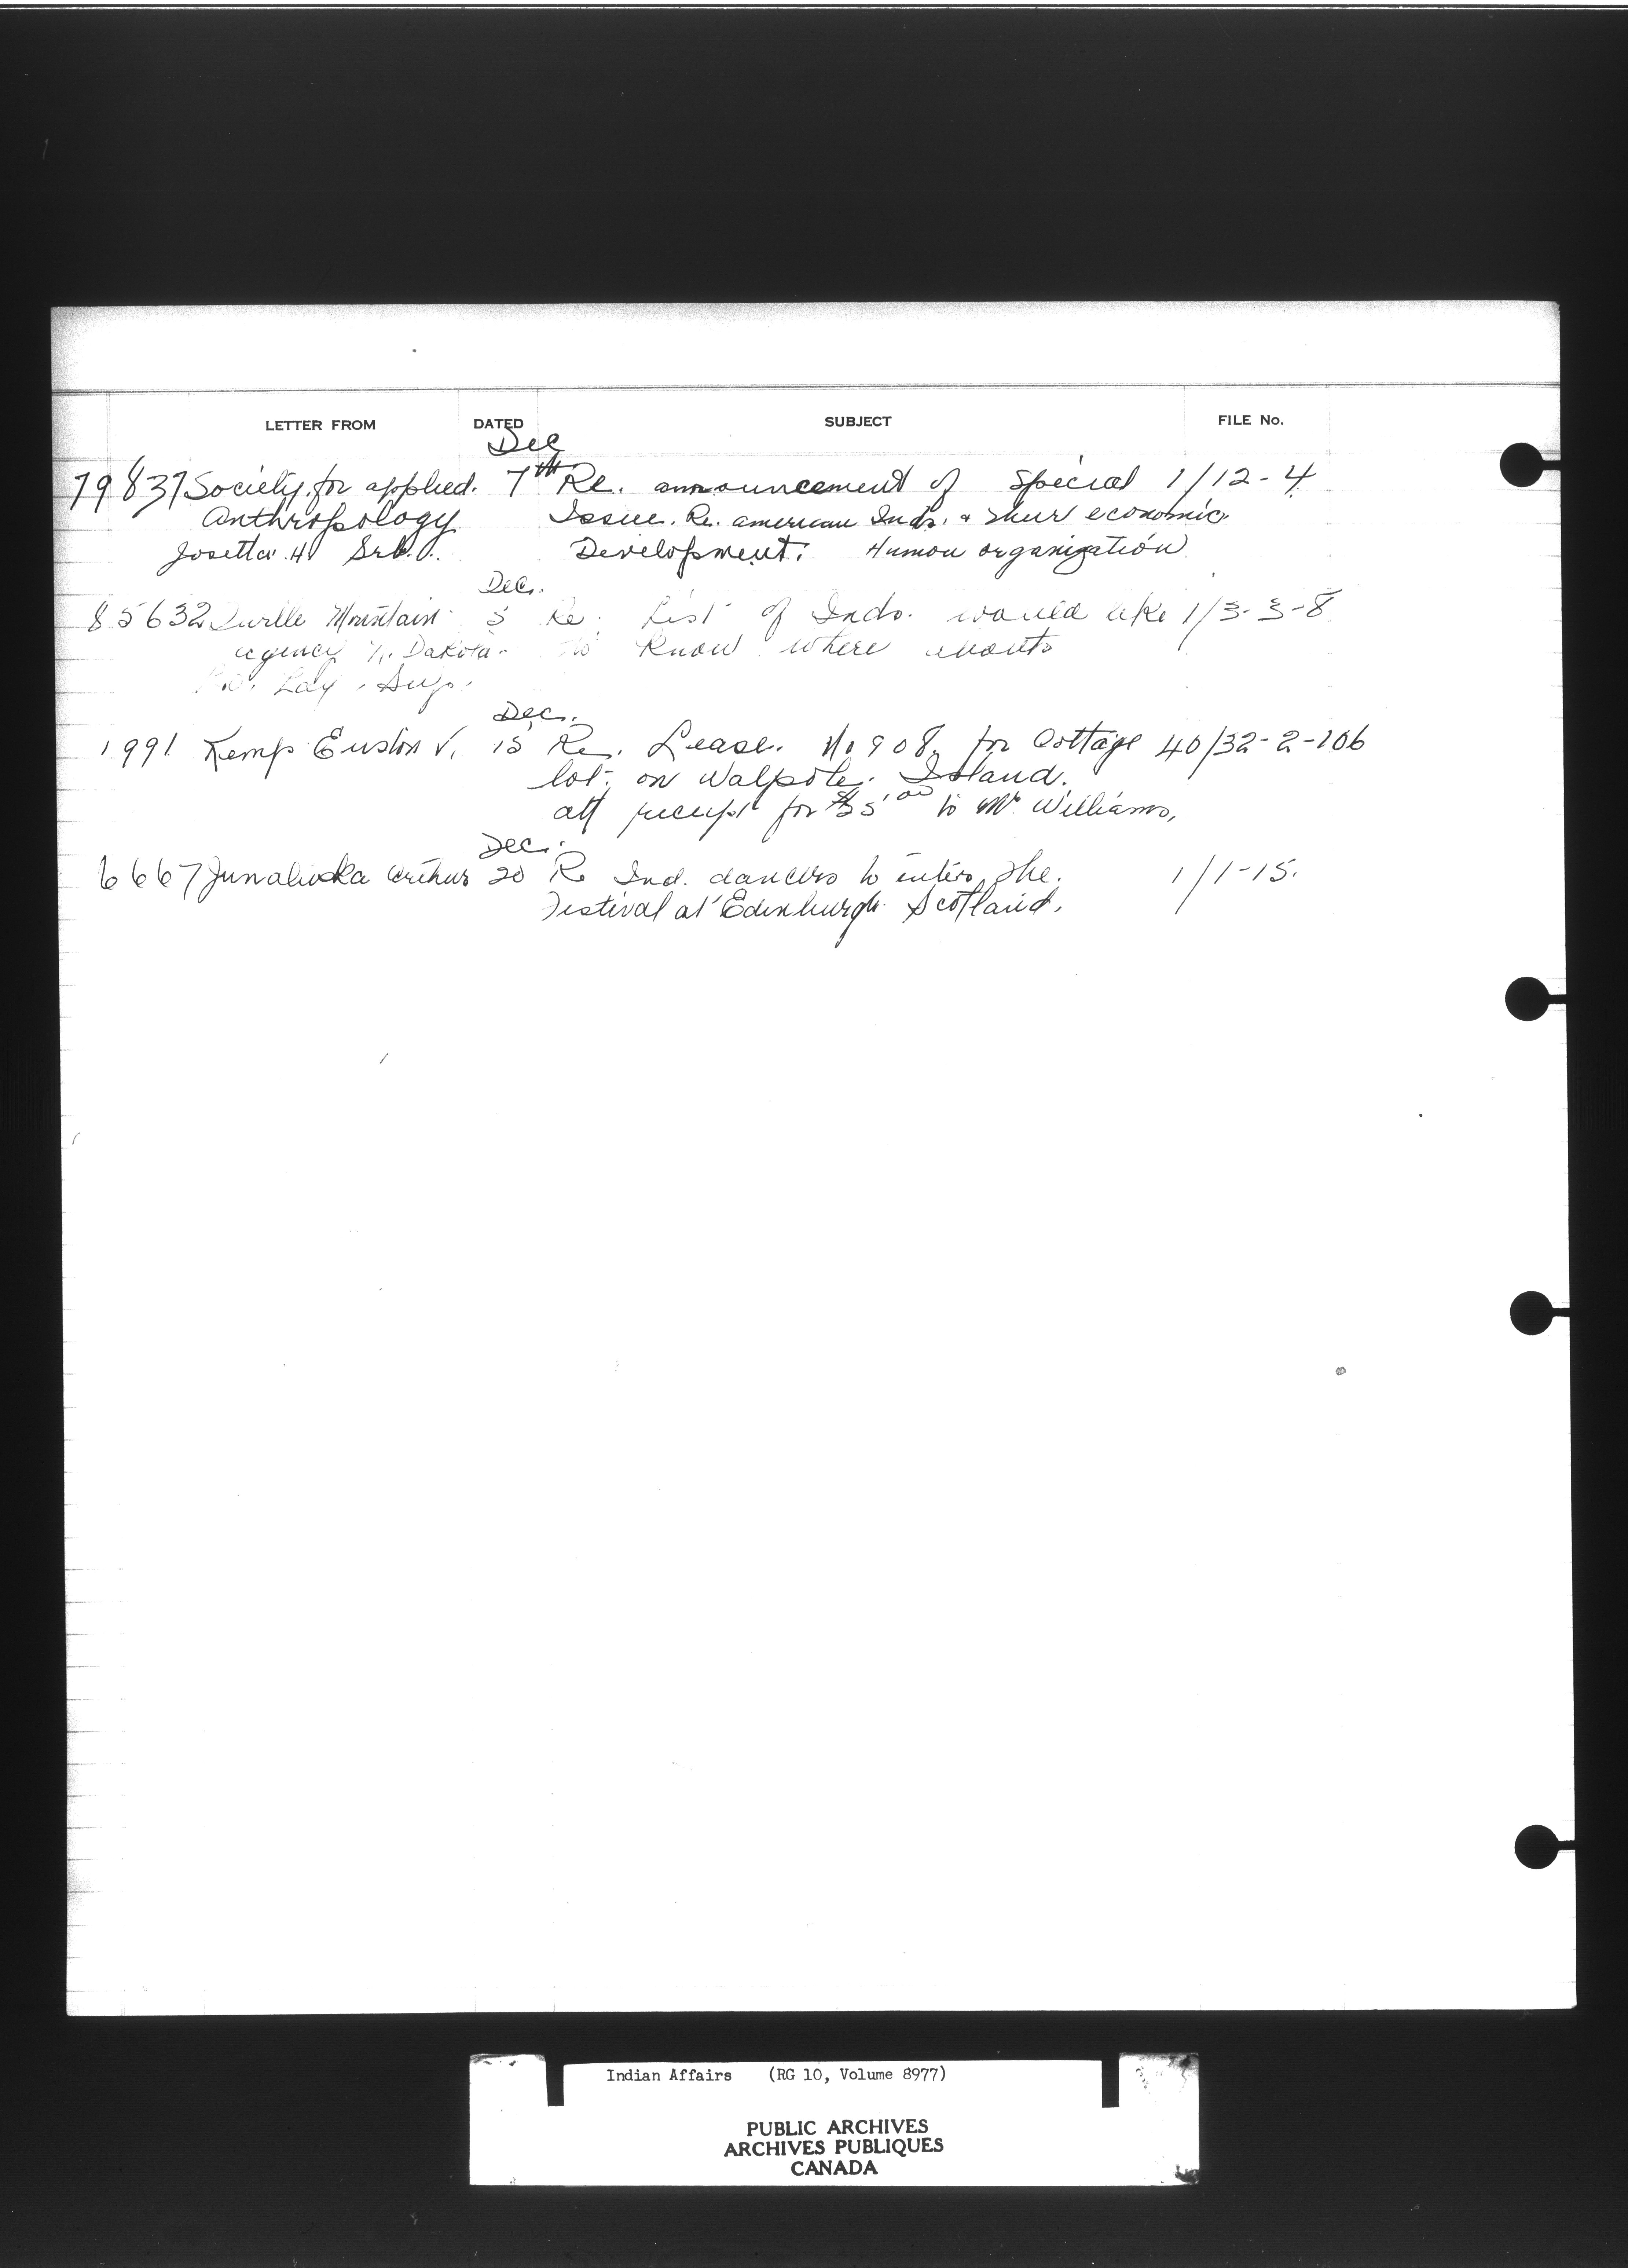 LETTER FROM DATED SUBJECT FILE No.
Dec
79837 Society for applied. 7th Re. announcement of Special 1/12-4
Anthropology Issue. Re. american Inds. & Their economic
Josetta H Development: Human organization
Dec.
85632 Turtle Mountain 5 Re. List of Inds. would like 1/3-3-8
agency N. Dakota. to Know where abouts
Lay, Sup.
Dec.
1991 Kemp Euston V. 15 Re. Lease. No 908 for Cottage 40/32-2-106
lot. on Walpole. Island.
att receipt for to Mr Williams,
Dec.
6667 Junaluska Arthur 20 Re Ind. dancers to enter the. 1/1-15.
Festival at Edinburgh Scotland.
Indian Affairs (RG 10, Volume 8977)
PUBLIC ARCHIVES
ARCHIVES PUBLIQUES
CANADA